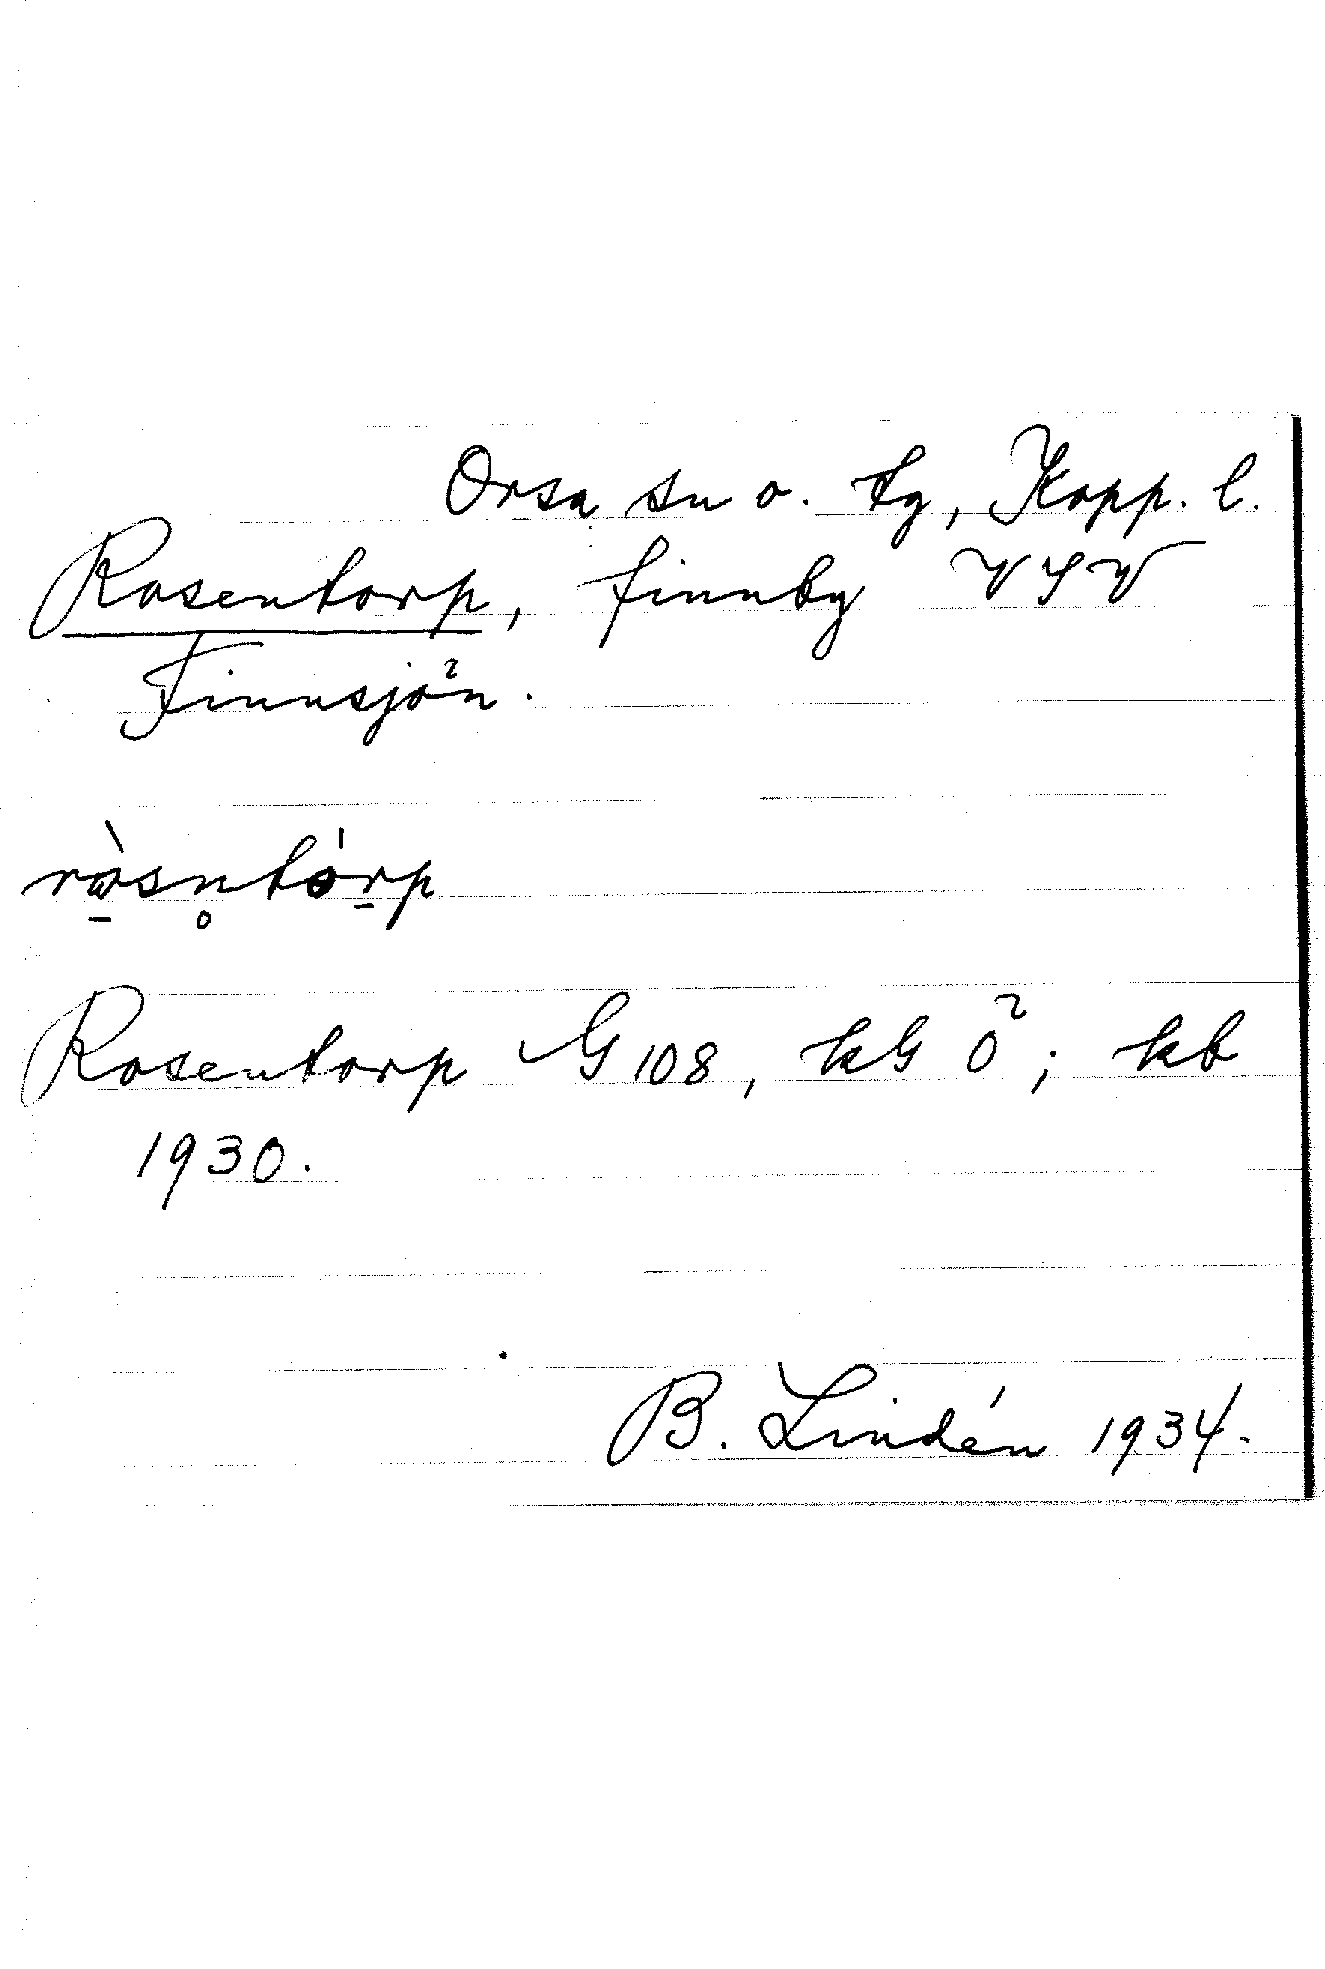 Orsa sn o. tg, Kopp. l.
Rosentorp, finnby VSV
Finnsjön.
rò̱sn̥tó̱rp
Rosentorp G 108, kG Ö; kb
1930.
B. Lindén 1934.